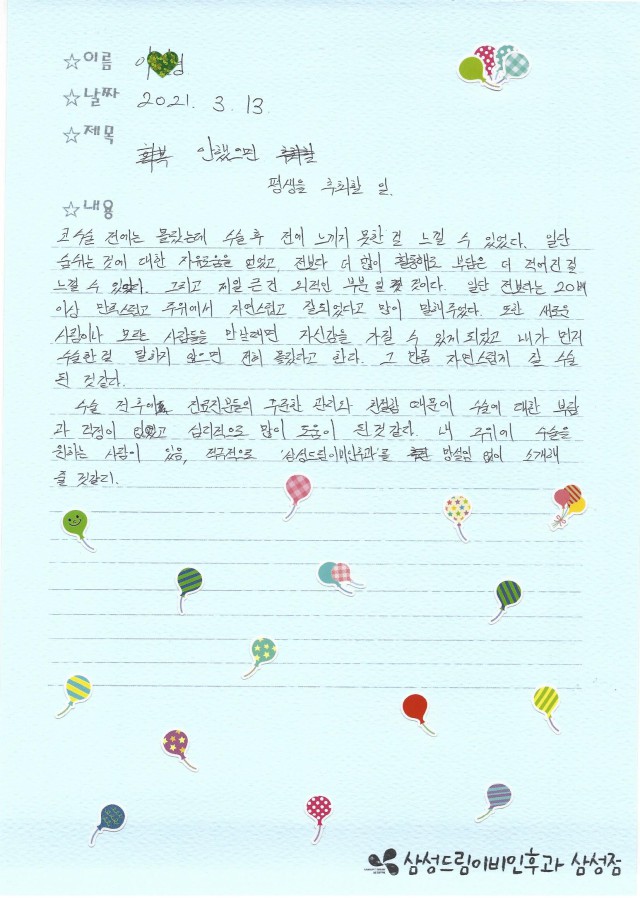 ☆이름 이 영
☆날짜 2021. 3. 13.
☆제목
안했으면
평생을 후회할 일.
☆내용
코수술 전에는 몰랐는데 수술 후 전에 느끼지 못한 걸 느낄 수 있었다. 일단
숨쉬는 것에 대한 자유로움을 얻었고, 전보다 더 많이 활동해도 부담은 더 적어진 걸
느낄 수 있었다. 그리고 제일 큰 건 외적인 부분일 것이다. 일단 전보다는 20배
이상 만족스럽고 주위에서 자연스럽고 잘되었다고 많이 말해주었다. 또한 새로운
사람이나 모르는 사람들을 만날때면 자신감을 가질 수 있게 되었고 내가 먼저
수술한 걸 말하지 않으면 전혀 몰랐다고 한다. 그 만큼 자연스럽게 잘 수술
된 것같다.
수술 전·후에 진료진분들의 꾸준한 관리와 친절함 때문에 수술에 대한 부담
과 걱정이 없었고 심리적으로 많이 도움이 된것 같다. 내 주위에 수술을
원하는 사람이 있음, 적극적으로 '삼성드림이비인후과'를 망설임 없이 소개해
줄 것같다.
삼성드림이비인후과 삼성점